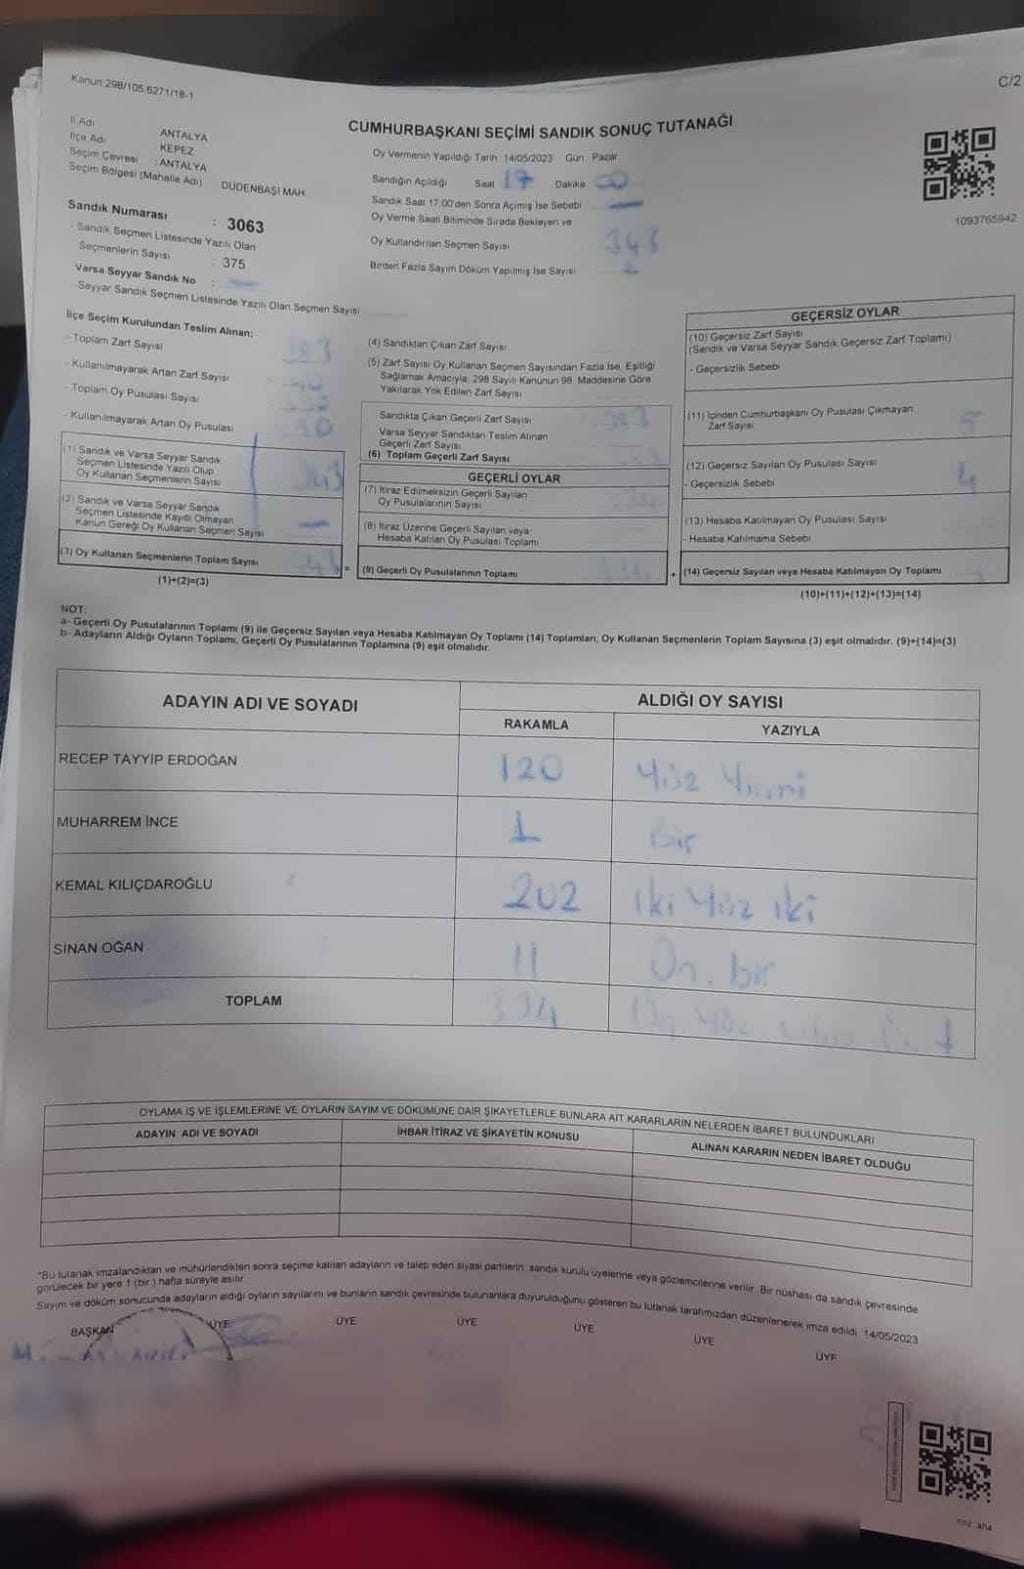 Kanun:298/105,6271/18-1
C/2
İl Adı ANTALYA
İlçe Adı KEPEZ
Seçim Çevresi : ANTALYA
Seçim Bölgesi (Mahalle Adı) DÜDENBAŞI MAH.
CUMHURBAŞKANI SEÇİMİ SANDIK SONUÇ TUTANAĞI
Oy Vermenin Yapıldığı Tarih: 14/05/2023 Gün: Pazar
Sandığın Açıldığı Saat 17 Dakika 00
Sandık Saat 17.00'den Sonra Açımış İse Sebebi
Oy Verme Saati Bitiminde Sırada Bekleyen ve
Oy Kullandırılan Seçmen Sayısı 343
Birden Fazla Sayım Döküm Yapılmış İse Sayısı
1093765942
Sandık Numarası : 3063
- Sandık Seçmen Listesinde Yazılı Olan
Seçmenlerin Sayısı : 375
Varsa Seyyar Sandık No :
- Seyyar Sandık Seçmen Listesinde Yazılı Olan Seçmen Sayısı
İlçe Seçim Kurulundan Teslim Alınan:
- Toplam Zarf Sayısı
- Kullanılmayarak Artan Zarf Sayısı
- Toplam Oy Pusulası Sayısı
- Kullanılmayarak Artan Oy Pusulası
(1) Sandık ve Varsa Seyyar Sandık
Seçmen Listesinde Yazılı Olup
Oy Kullanan Seçmenlerin Sayısı 343
(2) Sandık ve Varsa Seyyar Sandık
Seçmen Listesinde Kayıtlı Olmayan
Kanun Gereği Oy Kullanan Seçmen Sayısı
(3) Oy Kullanan Seçmenlerin Toplam Sayısı =
(1)+(2)=(3)
(4) Sandıktan Çıkan Zarf Sayısı
(5) Zarf Sayısı Oy Kullanan Seçmen Sayısından Fazla İse, Eşitliği
Sağlamak Amacıyla, 298 Sayılı Kanunun 98. Maddesine Göre
Yakılarak Yok Edilen Zarf Sayısı
Sandıkta Çıkan Geçerli Zarf Sayısı
Varsa Seyyar Sandıktan Teslim Alınan
Geçerli Zarf Sayısı
(6) Toplam Geçerli Zarf Sayısı
GEÇERLİ OYLAR
(7) İtiraz Edilmeksizin Geçerli Sayılan
Oy Pusulalarının Sayısı
(8) İtiraz Üzerine Geçerli Sayılan veya
Hesaba Katılan Oy Pusulası Toplamı
(9) Geçerli Oy Pusulalarının Toplamı +
GEÇERSİZ OYLAR
(10) Geçersiz Zarf Sayısı
(Sandık ve Varsa Seyyar Sandık Geçersiz Zarf Toplamı)
- Geçersizlik Sebebi
(11) İçinden Cumhurbaşkanı Oy Pusulası Çıkmayan
Zarf Sayısı 5
(12) Geçersiz Sayılan Oy Pusulası Sayısı
- Geçersizlik Sebebi 4
(13) Hesaba Katılmayan Oy Pusulası Sayısı
- Hesaba Katılmama Sebebi
(14) Geçersiz Sayılan veya Hesaba Katılmayan Oy Toplamı
(10)+(11)+(12)+(13)=(14)
NOT:
a- Geçerli Oy Pusulalarının Toplamı (9) ile Geçersiz Sayılan veya Hesaba Katılmayan Oy Toplamı (14) Toplamları, Oy Kullanan Seçmenlerin Toplam Sayısına (3) eşit olmalıdır. (9)+(14)=(3)
b- Adayların Aldığı Oyların Toplamı, Geçerli Oy Pusulalarının Toplamına (9) eşit olmalıdır.
ADAYIN ADI VE SOYADI ALDIĞI OY SAYISI
RAKAMLA YAZIYLA
RECEP TAYYİP ERDOĞAN 120 Yüz Yirmi
MUHARREM İNCE 1 Bir
KEMAL KILIÇDAROĞLU 202 iki Yüz iki
SİNAN OĞAN 11 On bir
TOPLAM 334
OYLAMA İŞ VE İŞLEMLERİNE VE OYLARIN SAYIM VE DÖKÜMÜNE DAİR ŞİKAYETLERLE BUNLARA AİT KARARLARIN NELERDEN İBARET BULUNDUKLARI
ADAYIN ADI VE SOYADI İHBAR İTİRAZ VE ŞİKAYETİN KONUSU ALINAN KARARIN NEDEN İBARET OLDUĞU
*Bu tutanak imzalandıktan ve mühürlendikten sonra seçime katılan adayların ve talep eden siyasi partilerin sandık kurulu üyelerine veya gözlemcilerine verilir. Bir nüshası da sandık çevresinde
görülecek bir yere 1 (bir ) hafta süreyle asılır.
Sayım ve döküm sonucunda adayların aldığı oyların sayılarını ve bunların sandık çevresinde bulunanlara duyurulduğunu gösteren bu tutanak tarafımızdan düzenlenerek imza edildi. 14/05/2023
BAŞKAN ÜYE ÜYE ÜYE ÜYE ÜYE ÜYE